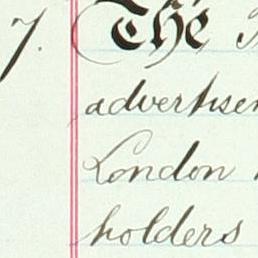 7. The
advertisem
London
holders